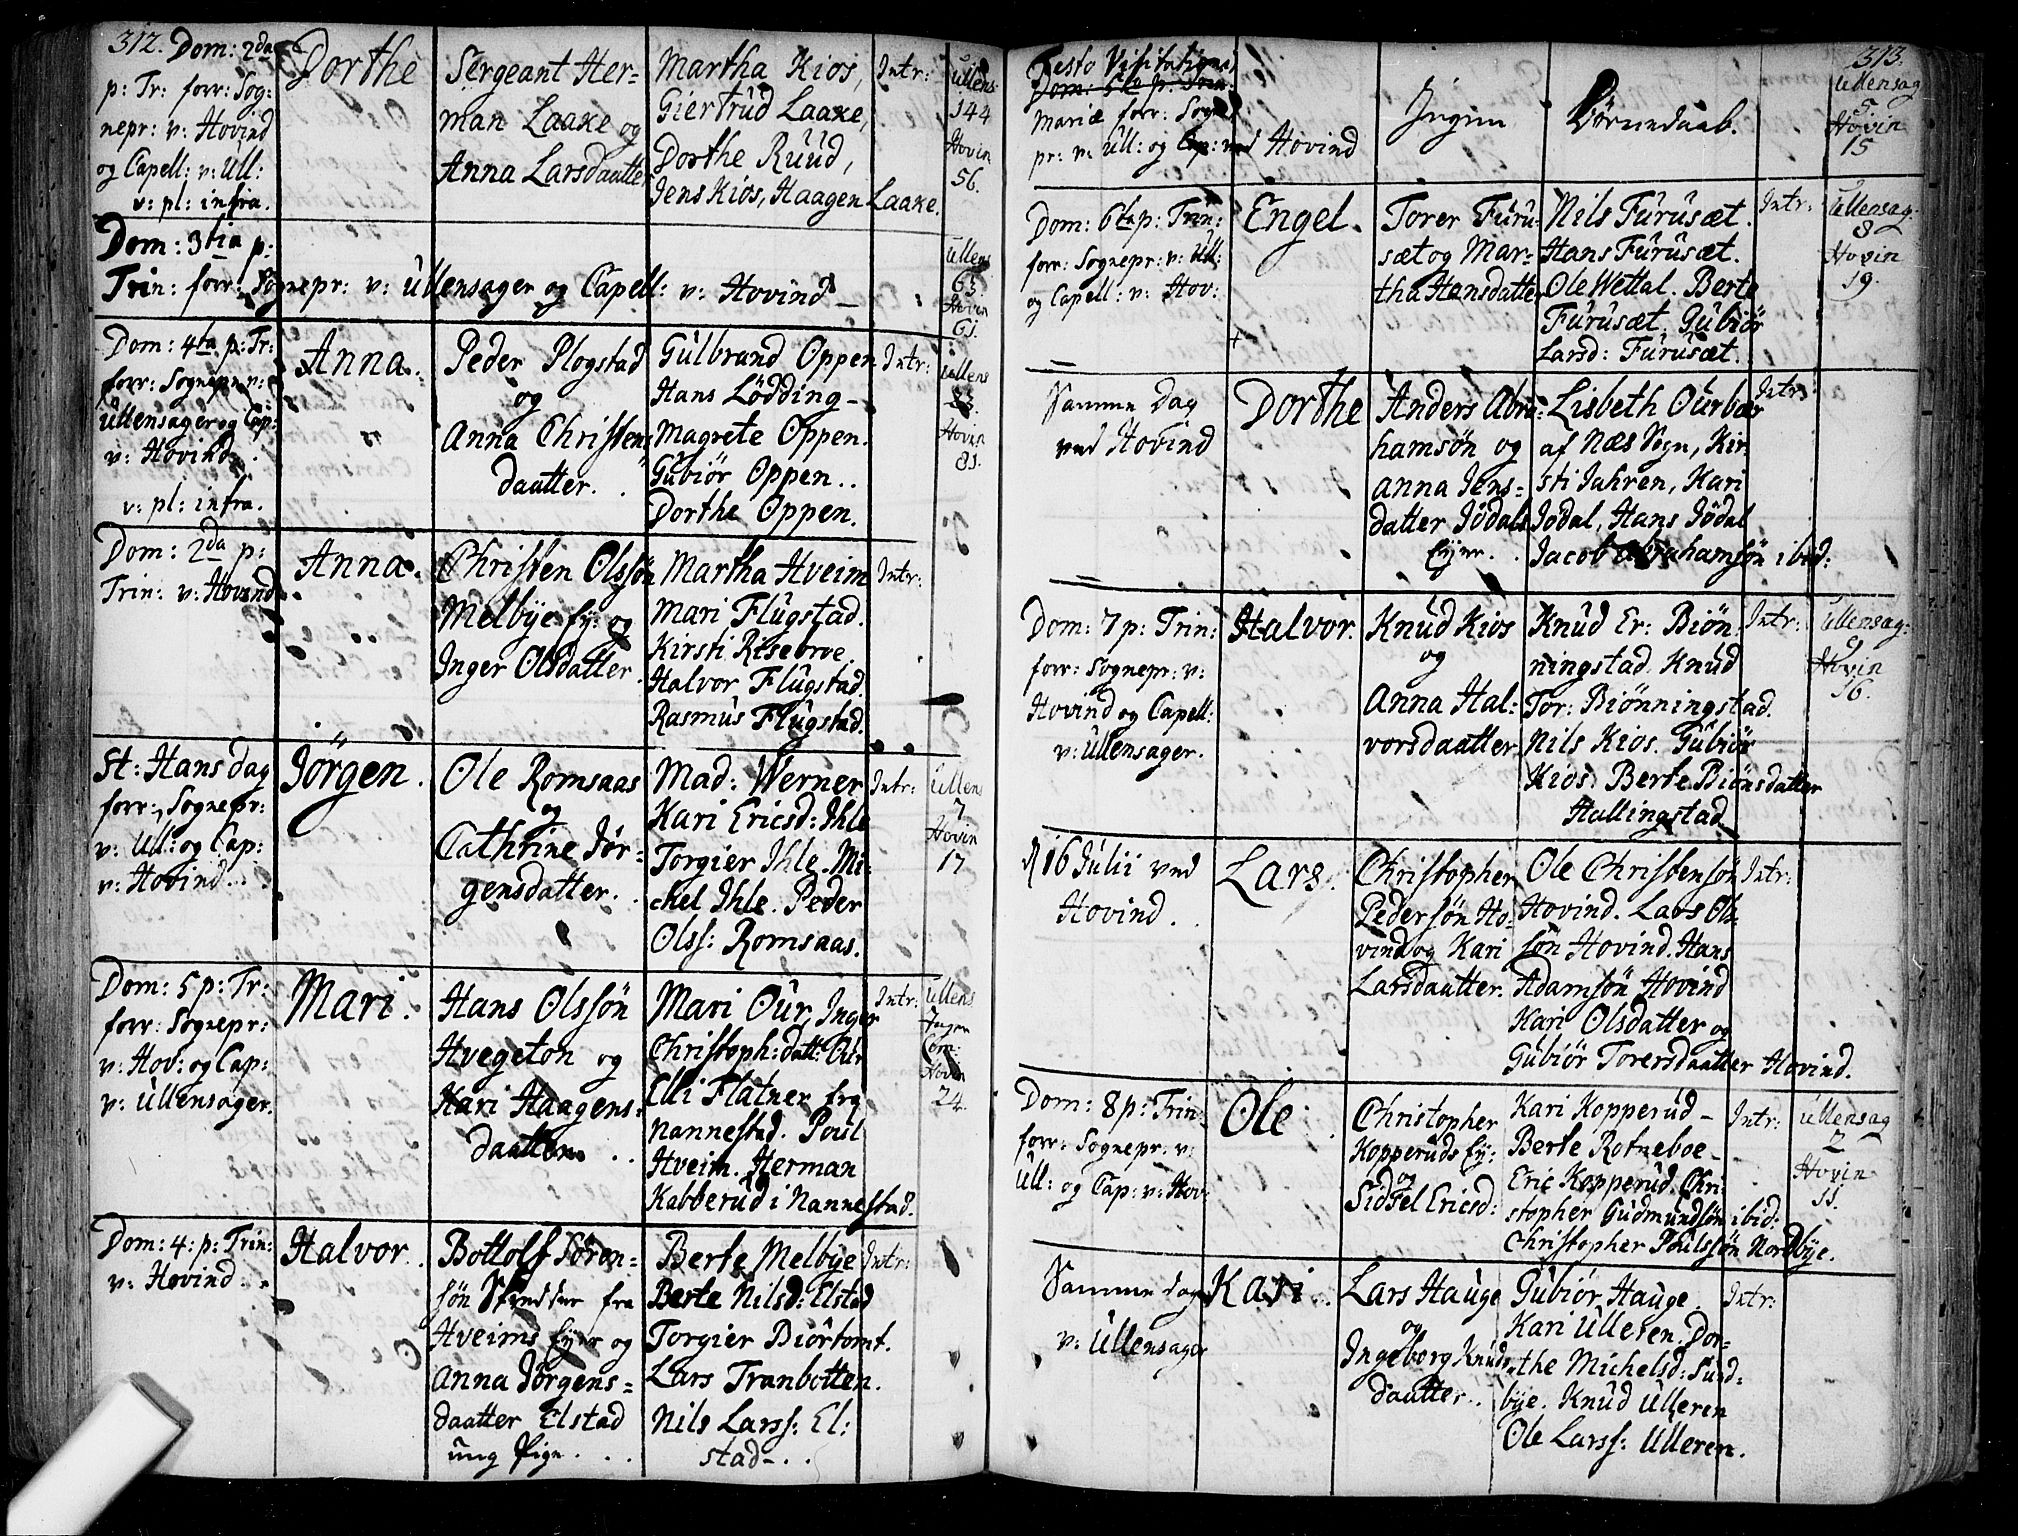 312. Dom: 2da
p: Tr: forr: Sog-
nepr: v: Hovind
og Capell: v: Ull:
v: pl: infra.
Dorthe
Sergeant Her-
man Laake og
Anna Larsdaatter
Martha Kios,
Giertrud Laake,
Dorthe Ruud,
Jens Kios, Haagen Laake.
Intr:
Ullens
144
Hovin
56.
Dom: 3tia p:
Trin: forr: Sognepr: v: Ullensager og Capell: v: Hovind
Ullens
63.
Hovin
61.
Dom: 4ta p: Tr:
forr: Sognepr: v:
Ullensager og Cap:
v: Hovind.
v: pl: infra.
Anna.
Peder Plogstad
og
Anna Christens
daatter.
Gulbrand Oppen
Hans Lödding
Magrete Oppen.
Gubiör Oppen.
Dorthe Oppen.
Intr:
Ullens
Hovin
81.
Dom: 2da p:
Trin: v: Hovind
Anna.
Christen Olssön
Melbÿe Eÿ: og
Inger Olsdatter.
Martha Hveim
Mari Flugstad.
Kirsti Risebroe
Halvor Flugstad.
Rasmus Flugstad.
Intr:
St: Hans dag
forr: Sognepr:
v: Ull: og Cap:
v: Hovind.
Jörgen.
Ole Romsaas
og
Cathrine Jör-
gensdatter.
Mad: Werner
Kari Ericsd: Ihle
Torgier Ihle. Mi-
ckel Ihle. Peder
Olss: Romsaas.
Intr:
Ullens
7.
Hovin
17
Dom: 5 p: Tr:
forr: Sognepr:
v: Hov: og Cap:
v: Ullensager.
Mari.
Hans Olssön
Hvegeton og
Kari Haagens-
daatter.
Mari Our, Inger
Christoph: datt: Our
Elli Flatner fra
Nannestad. Poul
Hveim. Herman
Kabberud i Nannestad.
Intr:
Ullens
Ingen
Com:
Hovin
24.
Dom: 4: p: Trin:
v: Hovind.
Halvor.
Bottolf Sören-
sön fra
Hveims Eÿer og
Anna Jörgens-
daatter Elstad
ung Pige.
Berte Melbye
Berte Nilsd: Elstad
Torgier Biörtomt.
Lars Tranbotten.
Nils Larss: El:
stad.
Intr:
313.
Festo Visitationis
Dom: 5ta p: Trin:
Mariæ forr: Sogne-
pr: v: Ull: og Cap: ved Hovind
Ingen
Börnedaab.
Ullensag
5
Hovin
15
Dom: 6ta p: Trin:
forr: Sognepr: v: Ull:
og Capell: v: Hov:
Engel.
Torer Furu-
sæt og Mar-
tha Hansdatter
Nils Furusæt.
Hans Furusæt.
Ole Wettal. Berte
Furusæt, Gubiör
Larsd: Furusæt.
Intr:
Ullensag:
8
Hovin
19.
Samme dag
ved Hovind
Dorthe
Anders Abra-
hamsön og
Anna Jens-
datter Jödals
Eÿer.
Lisbeth Ourbær
af Næs Sogn, Kir
sti Jahren, Kari
Jodal, Hans Jödal
Jacob Abrahamsön ibid:
Intr:
Dom: 7 p: Trin:
forr: Sognepr: v:
Hovind og Capell:
v: Ullensager.
Halvor.
Knud Kios
og
Anna Hal-
vorsdaatter
Knud Er: Biön-
ningstad. Knud
Tor: Biönningstad.
Nils Kios. Gubiör
Kios. Berte Biönsdatter
Hallingstad
Intr:
Ullensag:
9
Hovin
16.
16 Julii ved
Hovind.
Lars.
Christopher
Pedersön Ho-
vind og Kari
Larsdaatter.
Ole Christensön
Hovind. Lars Ol-
sön Hovind. Hans
Adamsön Hovind
Kari Olsdatter og
Gubiör Torersdaatter Hovind.
Intr:
Dom: 8 p: Trin
forr: Sognepr: v:
Ull: og Cap: v: Hov:
Ole
Christopher
Kopperuds Eÿ:
og
Sidsel Ericsd:
Kari Kopperud
Berte Rotneboe
Eric Kopperud. Chri-
stopher Gudmundsön ibid:
Christopher Poulssön Nordbÿe.
Intr:
Ullensag
2
Hovin
11.
Samme dag
v: Ullensager
Kari.
Lars Hauge
og
Ingeborg Knuds-
daatter.
Gubiör Hauge
Kari Ulleren. Dor-
the Michelsd: Sund-
bÿe. Knud Ulleren
Ole Larss: Ulleren.
Intr: